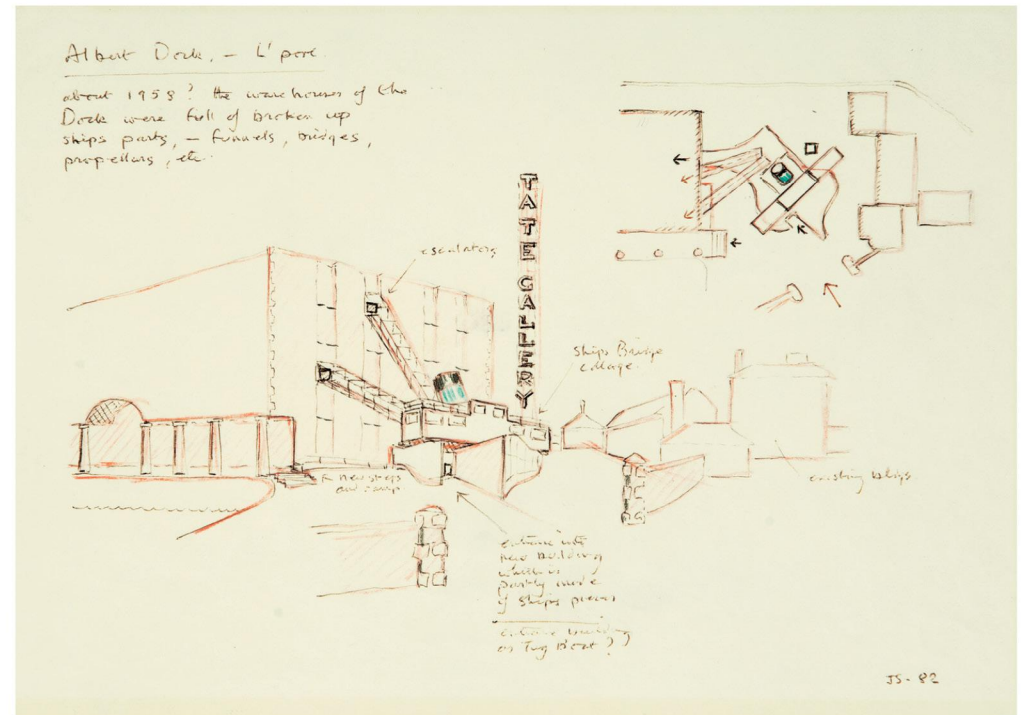 Albert Dock, - L'pool.
about 1958? the warehouses of the
Dock were full of broken up
ships parts, - funnels, bridges,
propellars, etc.
TATE GALLERY
escalators
Ships Bridge
collage.
new steps
and ramp
existing bldgs
entrance into
new building
which is
partly made
of ships pieces
entrance building
as Tug Boat??
JS - 82